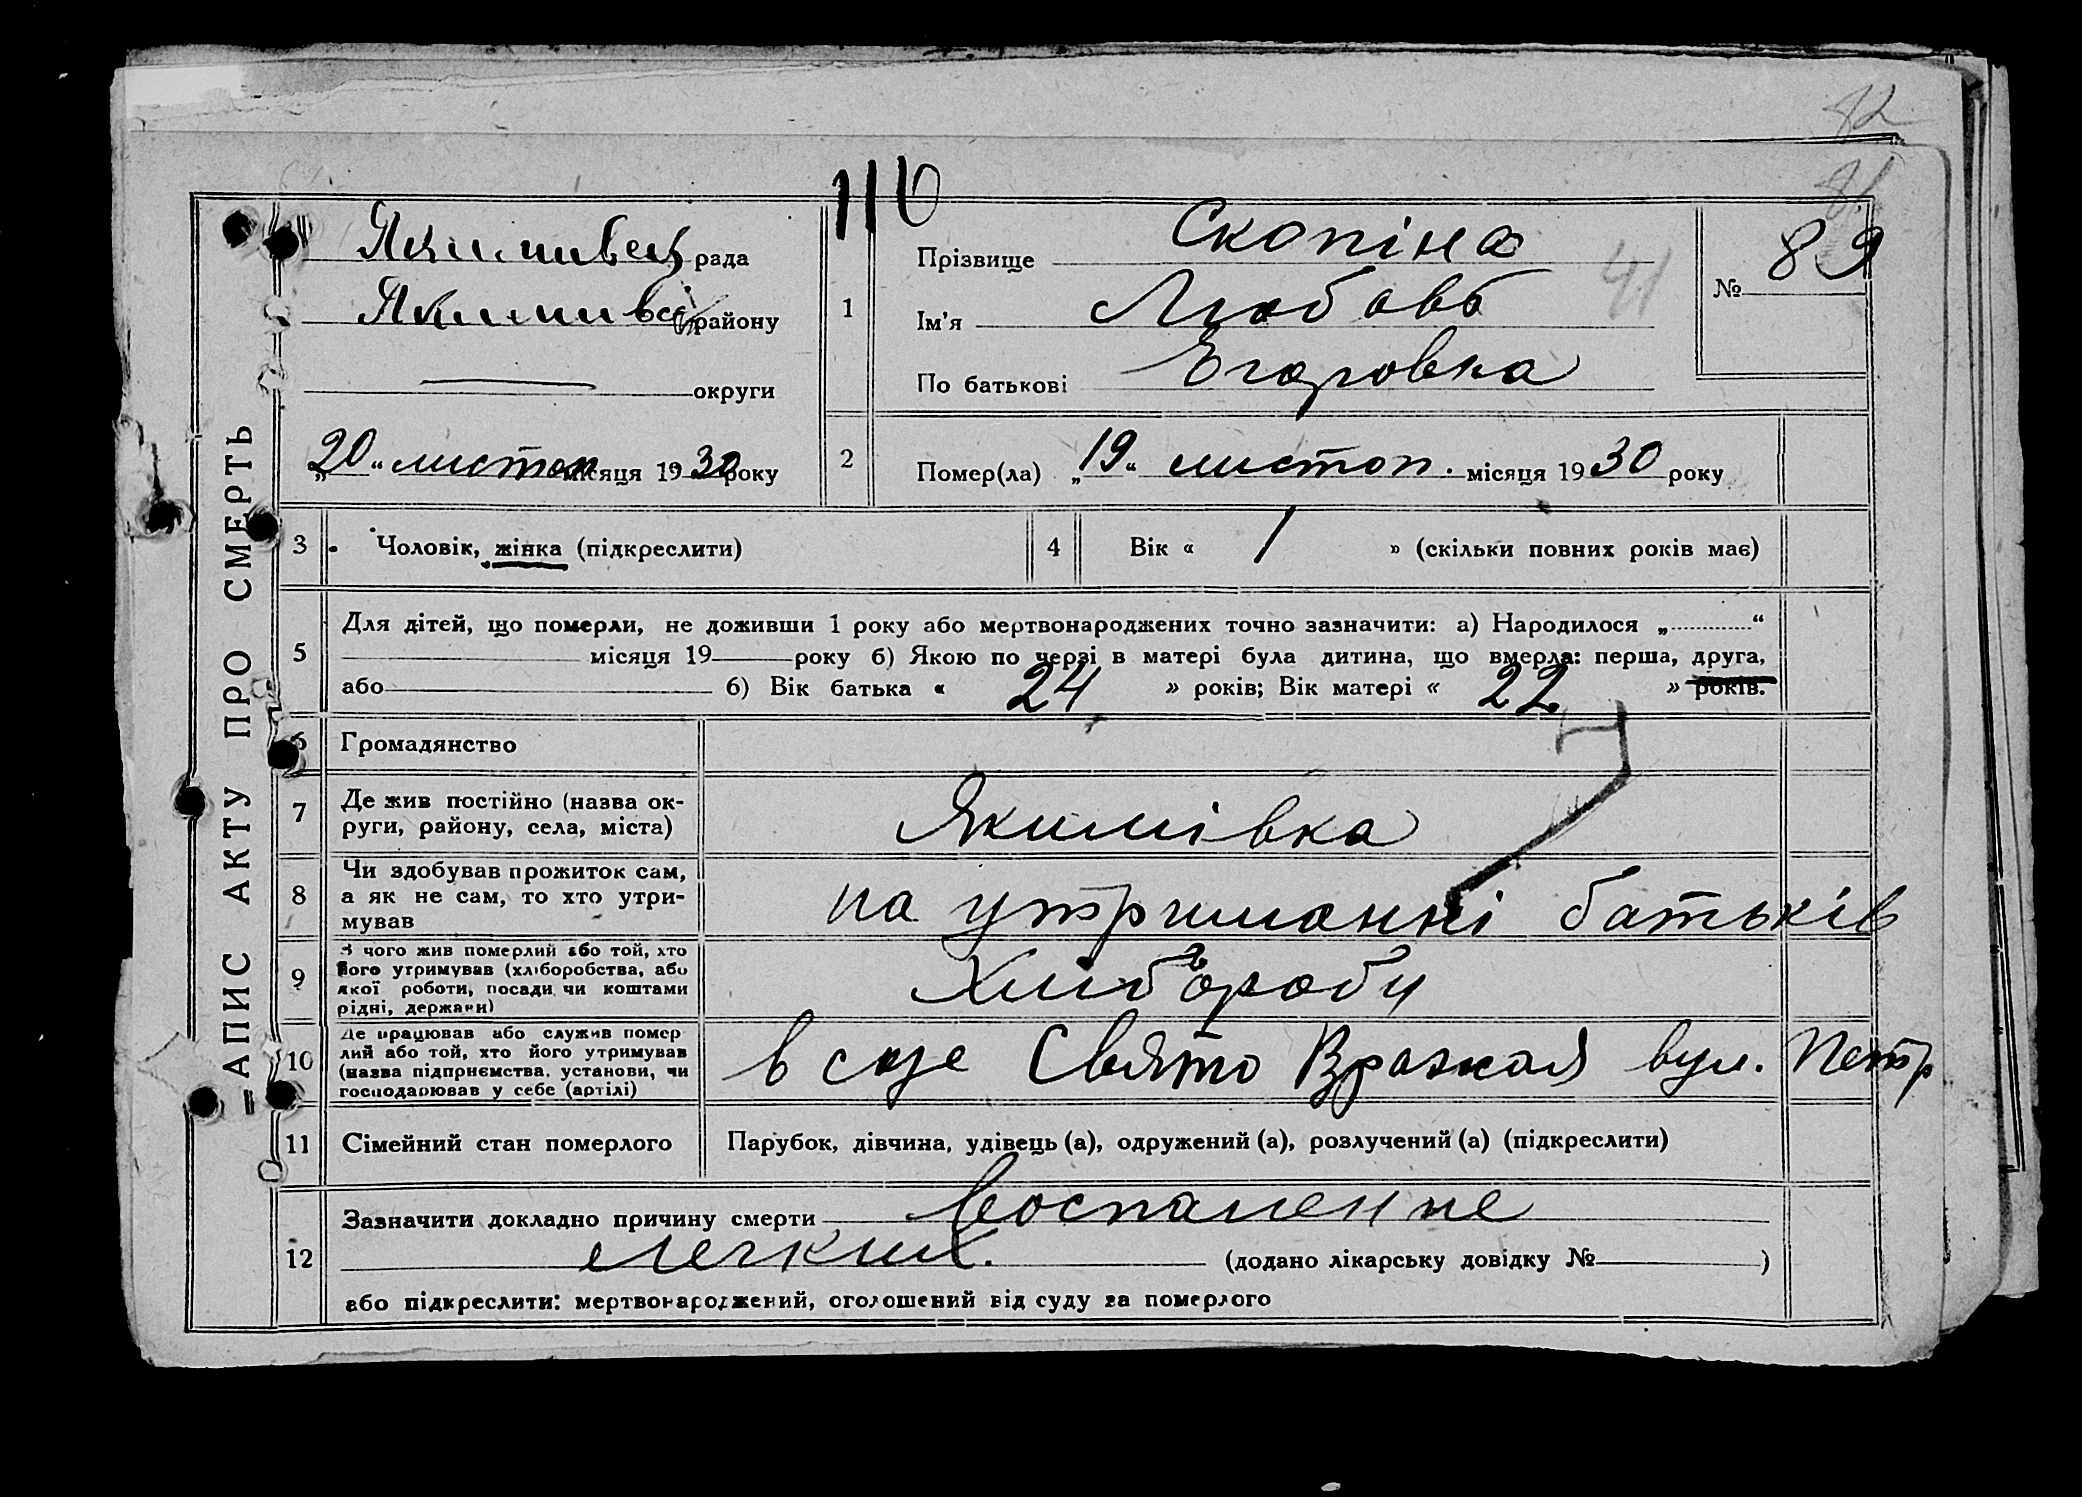 82
81
АПИС АКТУ ПРО СМЕРТЬ
116
рада
району
округи
„20“ листоп місяця 1930 року
1
Прізвище Скопіна
Ім'я Любовь
По батькові Егоровна
41
№ 89
2
Помер(ла) „19“ листоп. місяця 1930 року
3
Чоловік, жінка (підкреслити)
4
Вік « 1 » (скільки повних років має)
5
Для дітей, що померли, не доживши 1 року або мертвонароджених точно зазначити: а) Народилося „ “
місяця 19 року б) Якою по черзі в матері була дитина, що вмерла: перша, друга,
або б) Вік батька « 24 » років; Вік матері « 22 » років.
6
Громадянство
7
Де жив постійно (назва ок-
руги, району, села, міста)
Якимівка
8
Чи здобував прожиток сам,
а як не сам, то хто утри-
мував
на утриманні батьків
9
З чого жив померлий або той, хто
його утримував (хліборобства, або
якої роботи, посади чи коштами
рідні, держави)
Хліборобу
10
Де працював або служив помер
лий або той, хто його утримував
(назва підприємства, установи, чи
господарював у себе (артілі)
в Свято вул. Петр
11
Сімейний стан померлого
Парубок, дівчина, удівець (а), одружений (а), розлучений (а) (підкреслити)
12
Зазначити докладно причину смерти воспаление
легких. (додано лікарську довідку № )
або підкреслити: мертвонароджений, оголошений від суду за померлого